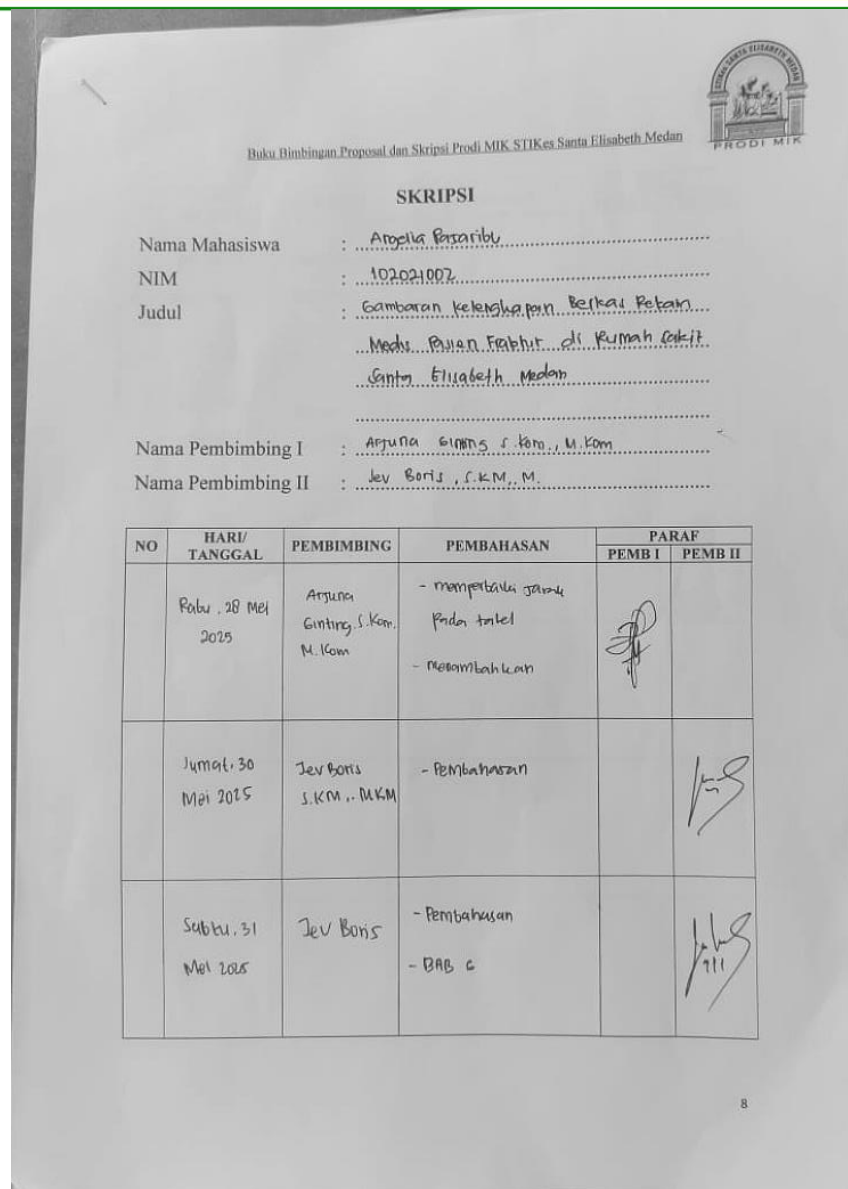 STIKES SANTA ELISABETH MEDAN
PRODI MIK
Buku Bimbingan Proposal dan Skripsi Prodi MIK STIKes Santa Elisabeth Medan
SKRIPSI
Nama Mahasiswa : Angelia Pasaribu
NIM : 102021002
Judul : Gambaran Kelengkapan Berkas Rekam
Medis Pasien Fraktur di Rumah Sakit
Santa Elisabeth Medan
Nama Pembimbing I : Arjuna Ginting S.Kom., M.Kom
Nama Pembimbing II : Jev Boris, S.KM., M.
NO HARI/ TANGGAL PEMBIMBING PEMBAHASAN PARAF
PEMB I PEMB II
Rabu, 28 Mei 2025
Arjuna Ginting, S.Kom. M.Kom
- memperbaiki Jarak
pada tabel
- menambahkan
Jumat, 30 Mei 2025
Jev Boris S.KM., MKM
- Pembahasan
Sabtu, 31 Mei 2025
Jev Boris
- Pembahasan
- BAB 6
8